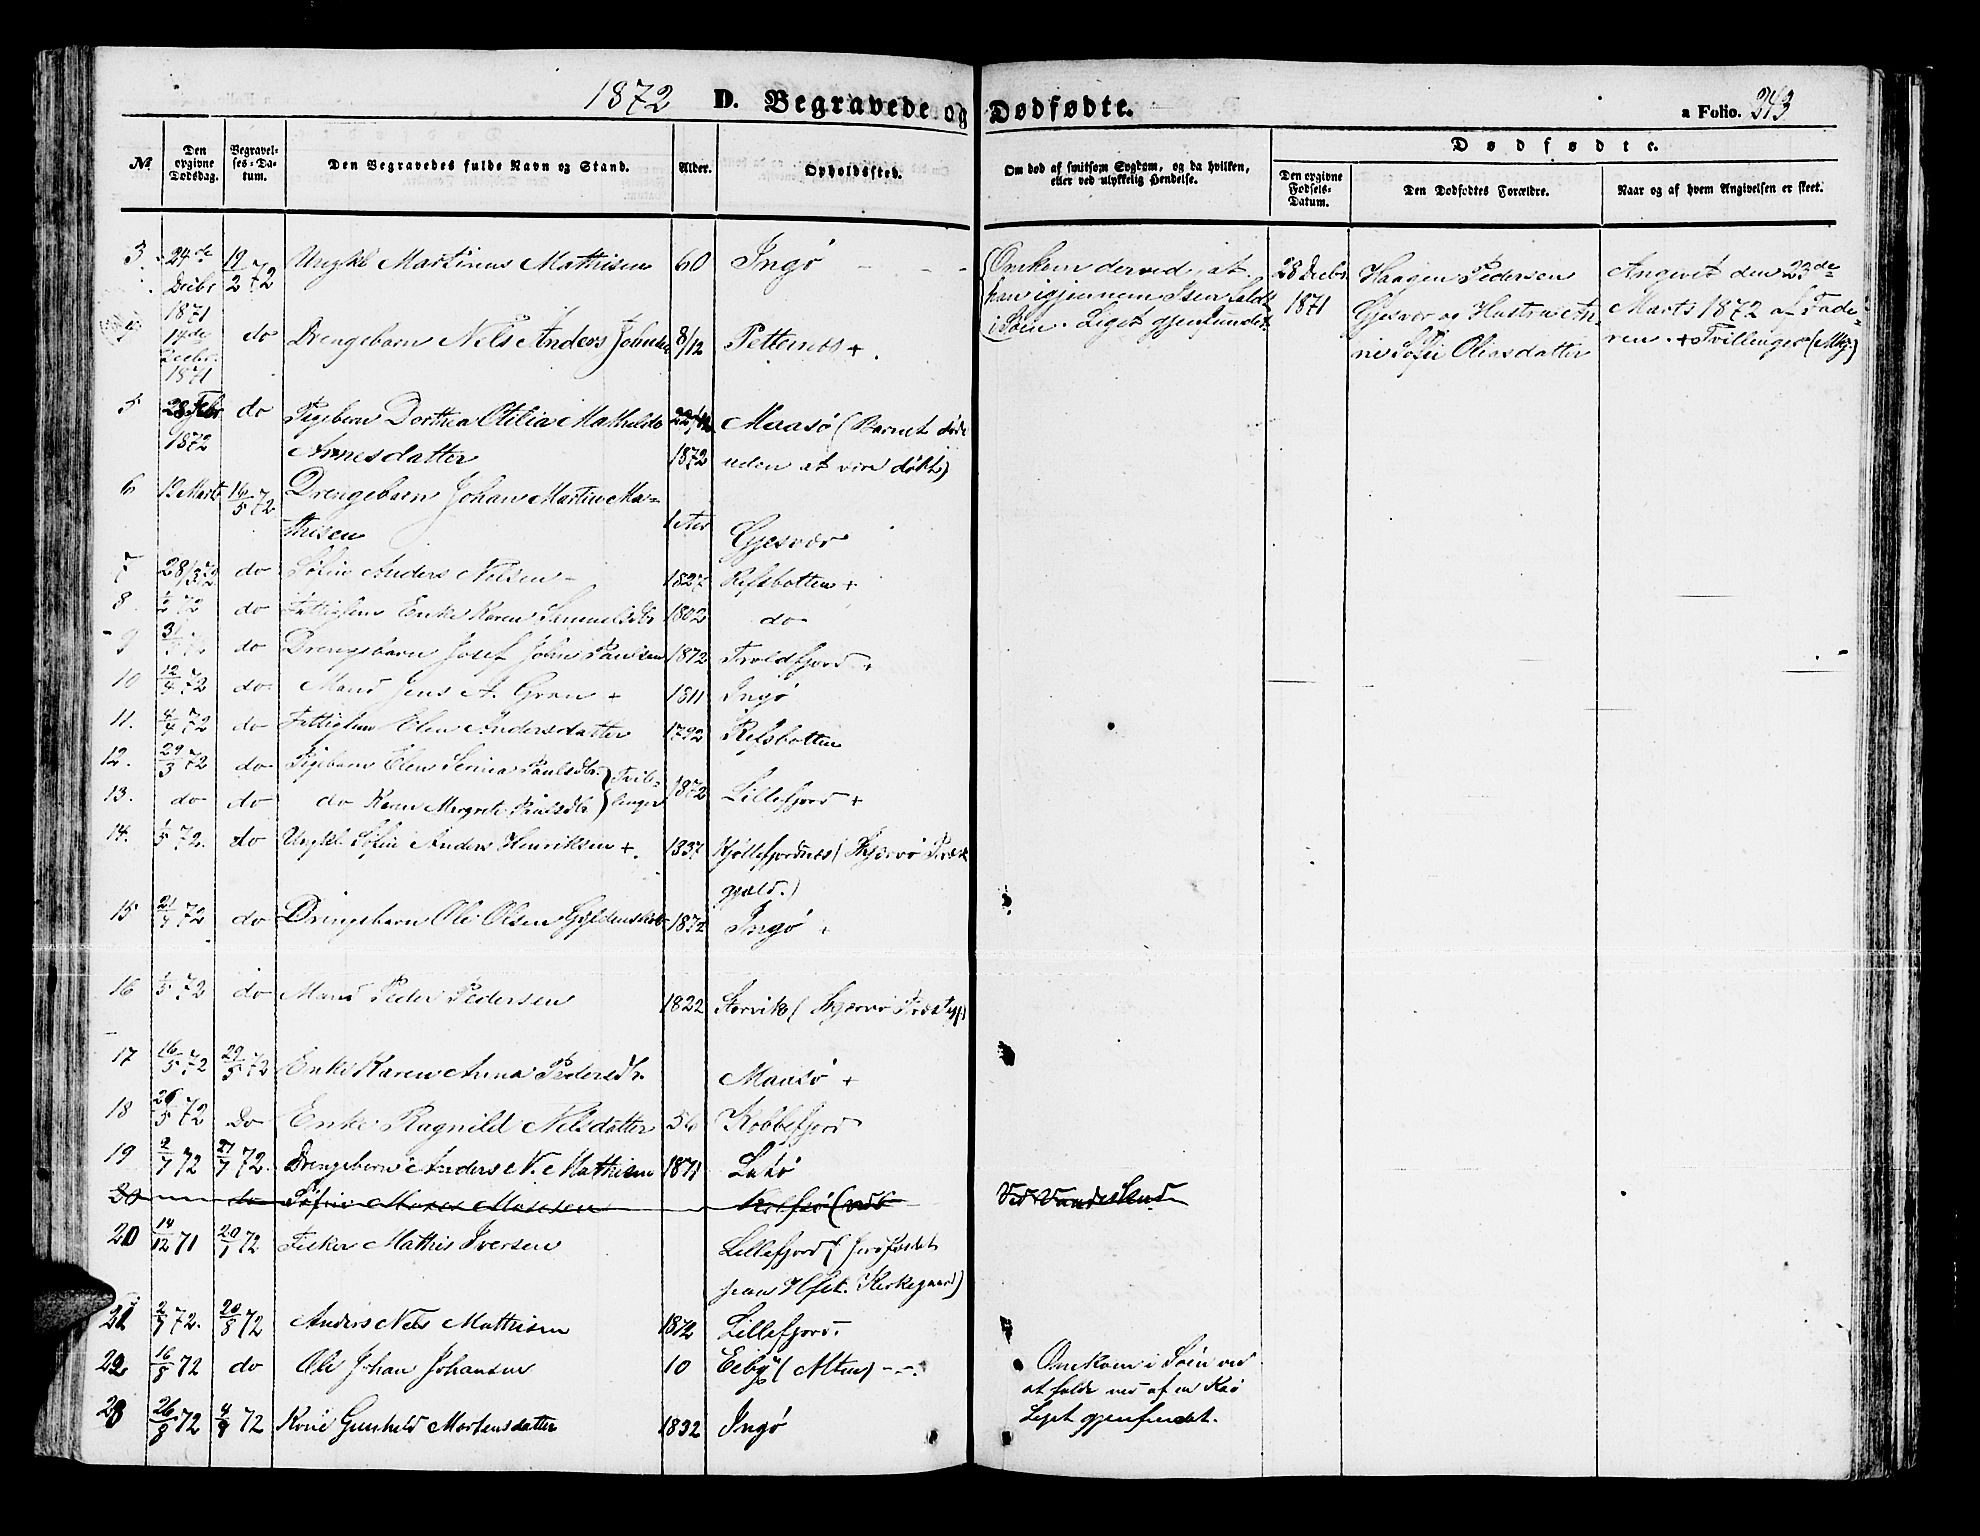 1872 D. Begravede og Dødfødte.
a Folio. 243
No.
Den opgivne Dødsdag.
Begravelses-Datum.
Den Begravedes fulde Navn og Stand.
Alder.
Opholdssted.
Om død af smitsom Sygdom, og da hvilken, eller ved ulykkelig Hendelse.
Dødfødte.
Den opgivne Fødsels-Datum.
Den Dødfødtes Forældre.
Naar og af hvem Angivelsen er skeet.
3. 24de Decbr 1871 19/2 72 Ungkl Martinus Mathisen 60 Ingø - - -
Omkom derved, at
han igjennem Isen faldt
i Søen. Liget gjenfundet.
28 Decbr 1871
Haagen Pedersen
Gjesvær og Hustru An-
ne Sofie Olensdatter
Angivet den 23de
Marts 1872 af Fade-
ren. + Tvillinger (Mkj.)
4 17de Decbr. 1871 do Drengebarn Nels Anders Johnsen 8/12 Petternes +.
5 28 Febr 1872 do Pigebarn Dorthea Otilia Mathilde 1872 Maasø (Barnet døde
Arnesdatter uden at være døbt)
6 12 Marts 16/5 72 Drengebarn Johan Martin Ma-
thisen Gjesvær
7 28/3 72 do Søfin Anders Nelsen - 1827 Refsbotten +
8. 72 do Fattiglem Enke Karen Samuelsdtr 1802 do
9 do Drengebarn Josef John Paulsen 1872 Troldfjord +
10 12/4 72 do Mand Jens A. Grøn + 1811 Ingø
11. 4/4 72 do Fattiglem Elen Andersdatter 1792 Refsbotten
12. 29/3 72 do Pigebarn Elen Serina Paulsdtr. } Tvil-
linger 1872 Lillefjord +
13. do do do Karen Margrete Paulsdtr
14. 1/5 72. do Ungkl Søfin Anders Henriksen +. 1837 Kjøllefjordnes (Skjervø Præste
gjæld.)
15 21/4 72 do Drengebarn Ole Olsen 1872 Ingø +
16 1/5 72 do Mand Peder Pedersen 1822 Storvik (Skjervø Præstgj)
17 16/5 72 29/5 72 Enke Karen Anna Pedersdtr. Maasø +
18 26/5 72 Do Enke Ragnild Nelsdatter 56 Kobbefjord
19 2/7 72 21/7 72. Drengebarn Anders N. Mathisen 1871 Latø
20 do Søfin Moses Mosesen Rolfsø (ved
20 14/12 71 20/1 72 Fisker Mathis Iversen Lillefjord (jordfæstet
paa Hft. Kirkegaard)
21 2/7 72. 20/8 72 Anders Nels Mathisen 1872 Lillefjord -
22 16/8 72 do Ole Johan Johansen 10 Eeby (Alten) - -.
Omkom i Søen ved
at falde ned af en Kaø
Liget gjenfundet.
23 26/8 72 4/9 72 Kone Gunhild Mortensdatter 1832 Ingø